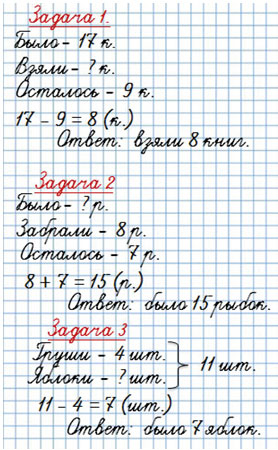 Задача 1.
Было - 17 к.
Взяли - ? к.
Осталось - 9 к.
17 - 9 = 8 (к.)
Ответ: взяли 8 книг.
Задача 2
Было - ? р.
Забрали - 8 р.
Осталось - 7 р.
8 + 7 = 15 (р.)
Ответ: было 15 рыбок.
Задача 3
Груши - 4 шт.
Яблоки - ? шт. } 11 шт.
11 - 4 = 7 (шт.)
Ответ: было 7 яблок.